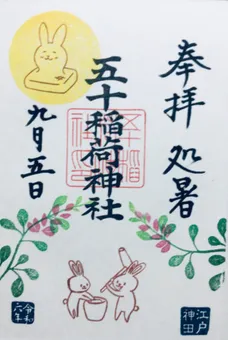 奉拝 処暑
五十稲荷神社
九月五日
江戸神田
令和六年